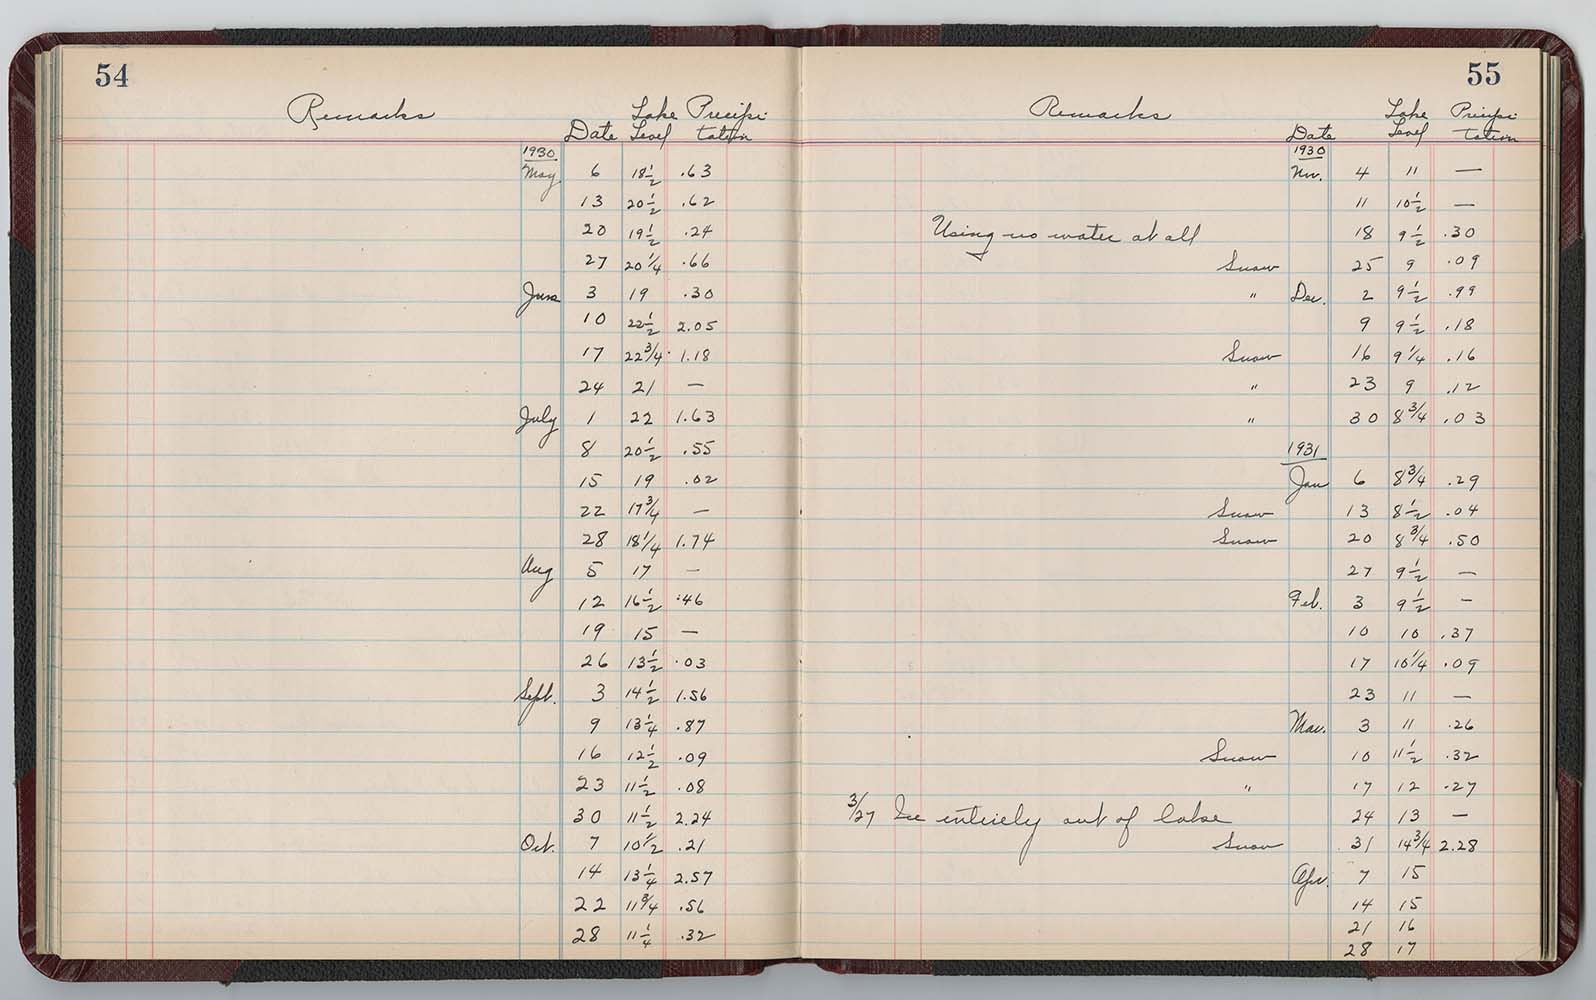 54
Remarks Date Lake Level Precipi-tation
1930
May 6 18½ .63
13 20½ .62
20 19½ .24
27 20¼ .66
June 3 19 .30
10 22½ 2.05
17 22¾ 1.18
24 21 —
July 1 22 1.63
8 20½ .55
15 19 .02
22 17¾ —
28 18¼ 1.74
Aug 5 17 —
12 16½ .46
19 15 —
26 13½ .03
Sept. 3 14½ 1.56
9 13¼ .87
16 12½ .09
23 11½ .08
30 11½ 2.24
Oct. 7 10½ .21
14 13¼ 2.57
22 11¾ .56
28 11¼ .32
55
Remarks Date Lake Level Precipi-tation
1930
Nov. 4 11 —
11 10½ —
Using no water at all 18 9½ .30
Snow 25 9 .09
" Dec. 2 9½ .99
9 9½ .18
Snow 16 9¼ .16
" 23 9 .12
" 30 8¾ .03
1931
Jan 6 8¾ .29
Snow 13 8½ .04
Snow 20 8¾ .50
27 9½ —
Feb. 3 9½ —
10 10 .37
17 10¼ .09
23 11 —
Mar. 3 11 .26
Snow 10 11½ .32
" 17 12 .27
3/27 Ice entirely out of lake 24 13 —
Snow 31 14¾ 2.28
Apr. 7 15
14 15
21 16
28 17